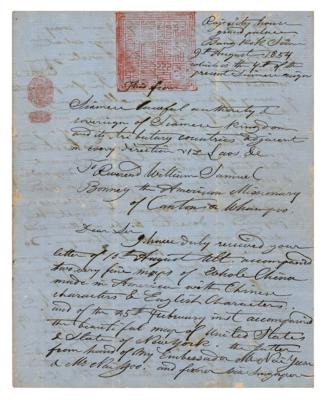 house
grand palace
Bangkok Siam
9th August 1854
which is the 4th of the
present Siamese reign
This from
Siamese lawful authority &
sovereign of Siamese kingdom
and its tributary countries adjacent
in every direction viz Laos &c
To Reverend William Samuel
Bonney the American Missionary
of Canton & Whampoa.
Dear Sir
I have duly received your
letter of 10th August accompanied
two very fine maps of whole China
made in American with Chinese
characters & English Characters,
and of the 25th February inst accompanied
the beautiful map of United States
& State of New York: the letter
from hand of My Embassador Mr Nai
& Mr and fixver via Singapore